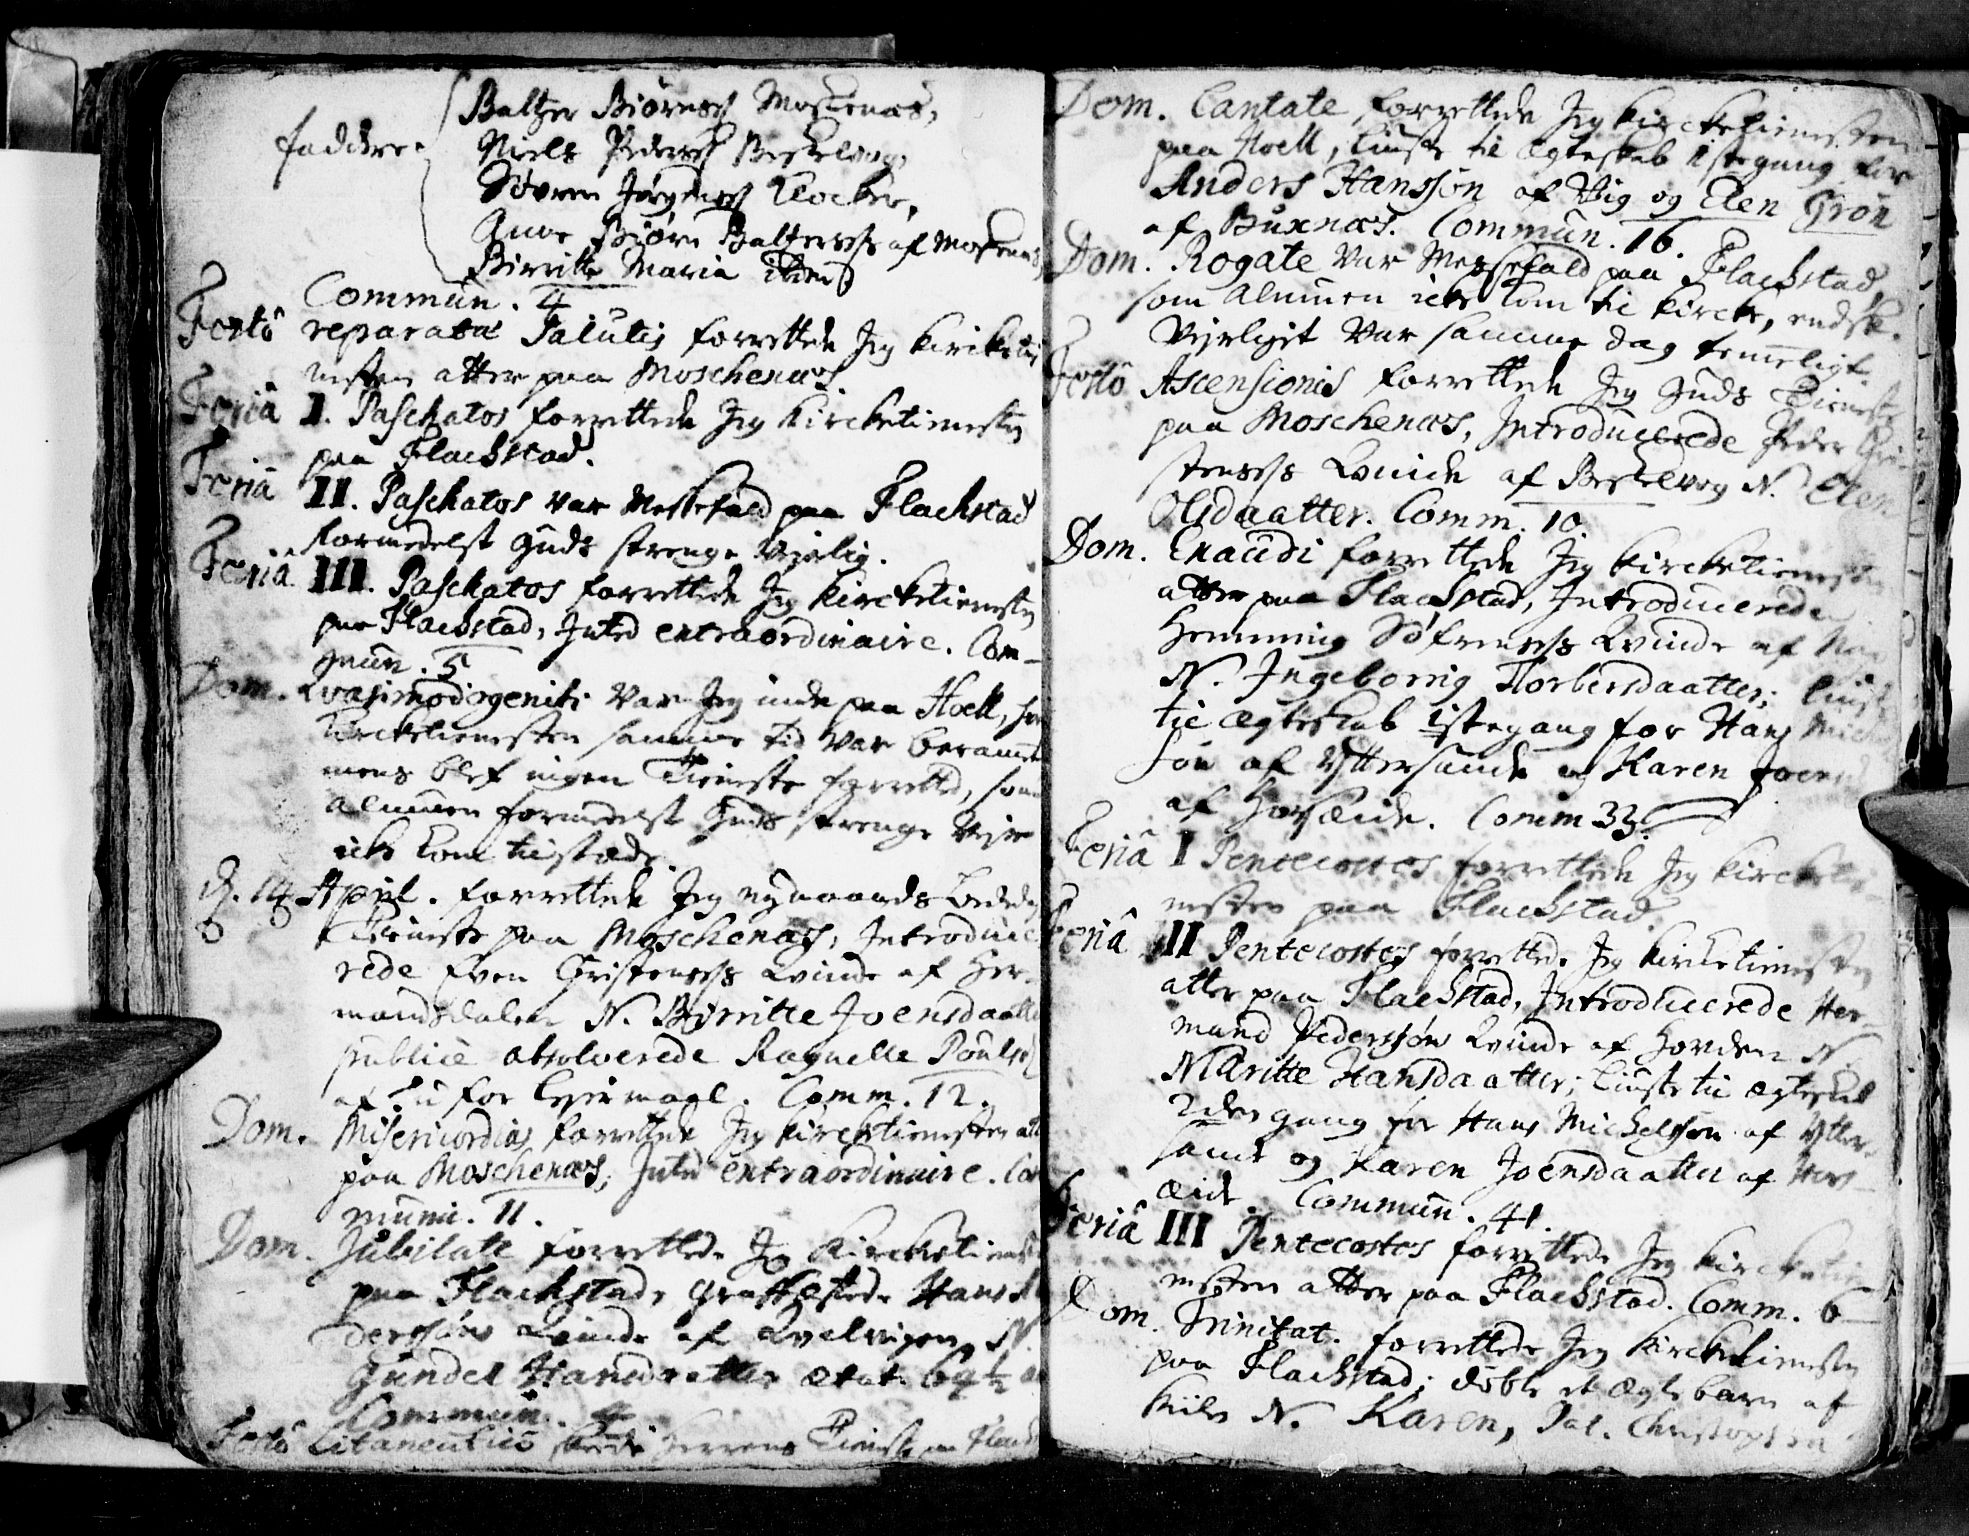 Baltzer Biørnss Moskenæs,
faddere. Niels Pederss Beskelvog,
Søvren Jørgenss Klocker,
Anne Biørn Baltzerss af Moskenæs
Birritte Maria
Commun. 4
Festô reparatæ Salutis forrettede Jeg kircketie-
nesten atter paa Moschenæs.
Feriâ I. Paschatos forrettede Jeg Kircketienesten
paa Flachstad.
Feriâ II. Paschatos var Messefald paa Flachstad
formedelst Guds strenge Vejrlig.
Feriâ III. Paschatos forrettede Jeg kircketienesten
paa Flachstad, Inted extraordinaire. Com-
mun. 5
Dom. Qvasimodogeniti var Jeg inde paa Hoell, hvor
kircketienesten samme tid var beramt
mens blef ingen Tieneste forretted, som
Almuen formedelst Guds strenge Vejr
icke kom tilstæde.
D. 14 April. forrettede Jeg Bededags
Tieneste paa Moschenæs, Introduce-
rede Christenss Qvinde af Her-
mandsdalen N. Birritte Joensdaatter
publice absolverede Ragnelle Poulsd.
af for Leiermaal. Comm. 12.
Dom. Misericordias forrettede Jeg kircketienesten atter
paa Moschenæs, Inted extraordinaire. Com
muni. 11.
Dom. Jubilate forrettede Jeg Kircketienesten
paa Flachstad, Graffæstede Hans
derssøns Qvinde af Qvalvigen, N.
Gundel Hansdaatter ætat. 69½
Commun. 4
Festô Litaneutico skede Herrens Tieneste paa Flachstad
Dom. Cantate forrettede Jeg kircketienesten
paa Hoell, liuste til ægteskab 1ste gang for
Anders Hanssøn af Vig og Elen Grøn
af Buxnæs. Commun. 16.
Dom. Rogate var Messefald paa Flachstad
som Almuen icke kom til kircke, endsk.
Vejrliget var samme dag temeligt.
Festô Ascensionis forrettede Jeg Guds Tieneste
paa Moschenæs, Introducerede Peder Chri-
stenss Qvinde af Beskelvog N. Elen
Olsdaatter. Comm. 10.
Dom. Exaudi forrettede Jeg kircketienesten
atter paa Flachstad, Introducerede
Hemming Søfrenss Qvinde af
N. Ingeborrig Thorbersdaatter; liuste
til ægteskab 1ste gang for Hans Michel
søn af Yttersande og Karen Joensd
af Horseide. Comm 33.
Feriâ I Pentecostes forrettede Jeg kircketie-
nesten paa Flachstad.
Feriâ II Pentecostes forrettede Jeg kircketienesten
atter paa Flachstad, Introducerede Her-
mand Pederssøns Qvinde af Horden N.
Maritte Hansdaatter; liuste til ægteskab
2den gang for Hans Michelssøn af Ytter-
sande og Karen Joensdaatter af Hors-
æide. Commun. 41.
Feriâ III Pentecostes forrettede Jeg kircketie-
nesten atter paa Flachstad. Comm. 6
Dom. Trinitat. forrettede Jeg kircketienesten
paa Flachstad; døbte et ægte barn af
Kiile N. Karen, Pat. Christopher